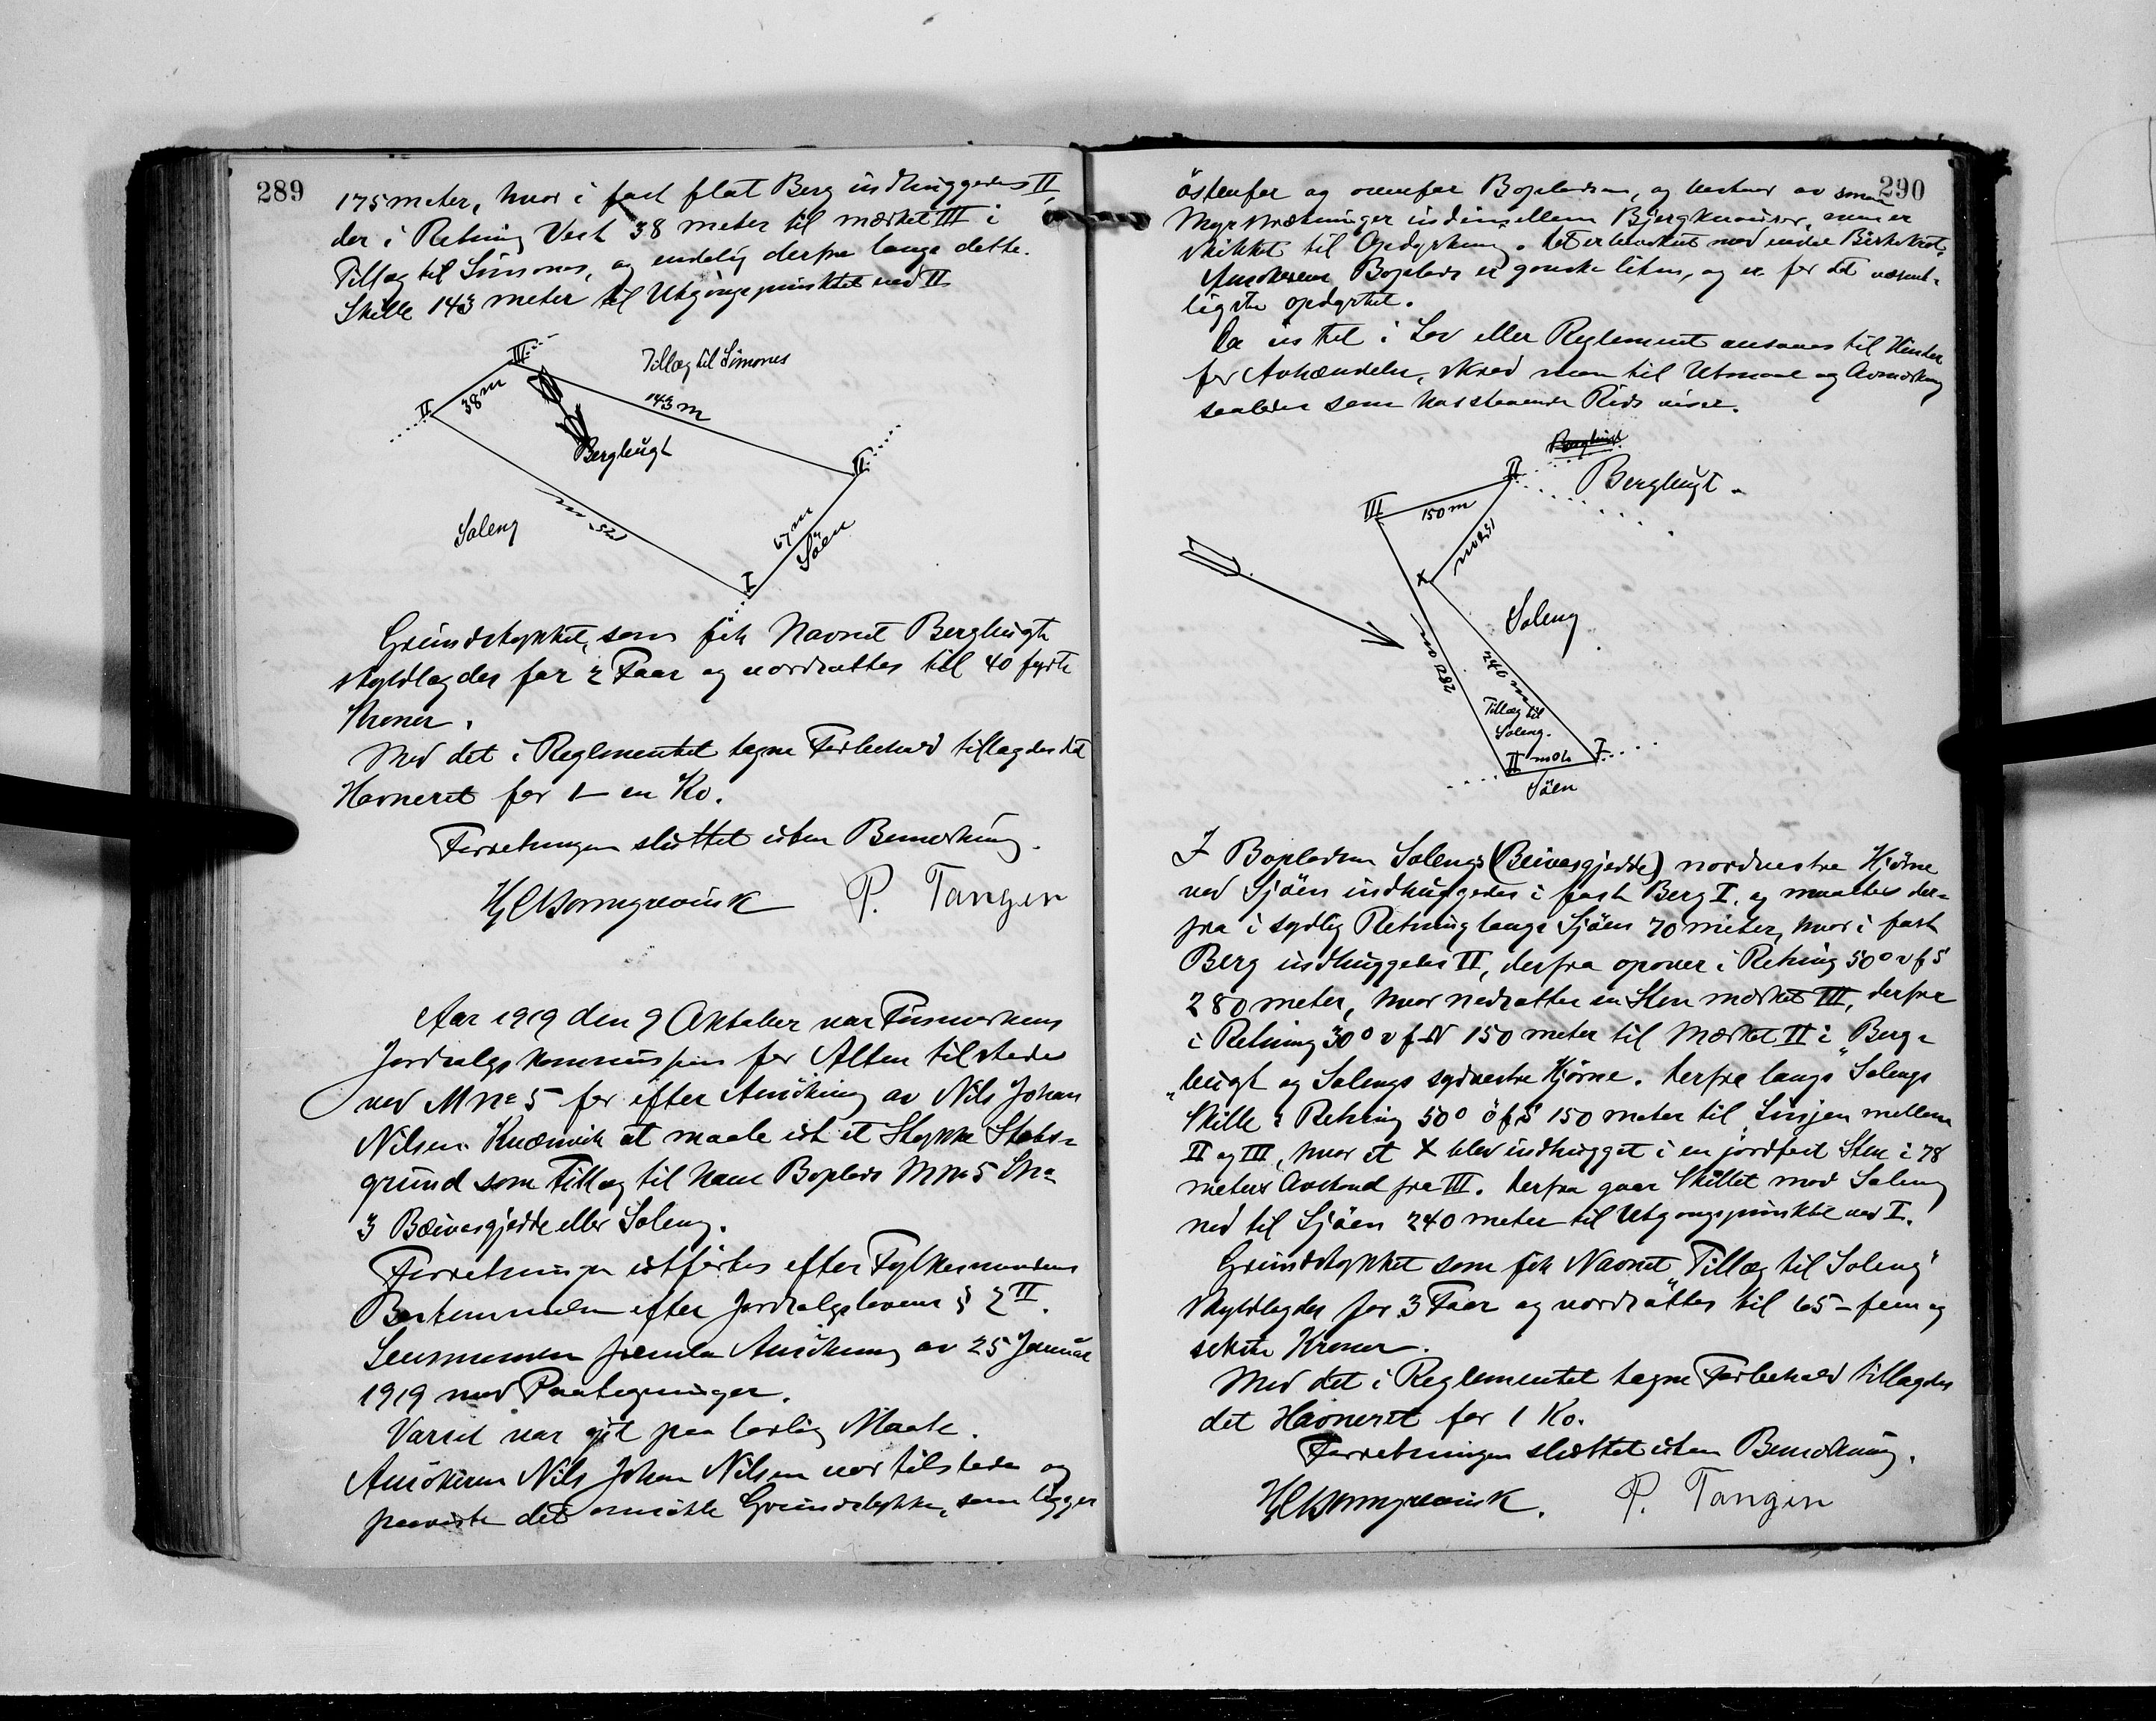 289
175 meter, hvor i fast flat Berg indhuggedes II,
der i Retning Vest 38 meter til mærket III i
Tillæg til Simones, og endelig derfra langs dette.
Skille 143 meter til Utgangspunktet ved II
III
Tillæg til Simones
II
38 m
143 m
Bergbugt
II
Soleng
175 m
67 m
Söen
I
Grundstykket, som fik Navnet Bergbugt
skyldlagdes for 2 Faar og værdsattes til 40 fyrti
Kroner.
Med det i Reglementet tagne Forbehold tillagdes det
Havneret for 1 – en Ko.
Forretningen sluttet uten Bemerkning.
P. Tangen
Aar 1919 den 9 Oktober var Finmarkens
Jordsalgskommission for Alten tilstede
ved M No 5 for efter Ansökning av Nils Johan
Nilsen Kvænvik at maale ut et Stykke Stats-
grund som Tillæg til hans Boplads M No 5 L No
3 Bæivasgjedde eller Soleng.
Forretningen utförtes efter Fylkesmandens
Bestemmelse efter Jordsalgslovens § 2 II.
Lensmanden fremla Ansökning av 25 Januar
1919 med Paategninger.
Varsel var git paa lovlig Maate.
Ansökeren Nils Johan Nilsen var tilstede og
paaviste det ansökte Grundstykke, som ligger
290
östenfor og ovenfor Bopladsen, og bestaar av smaa
Myrstrækninger indimellem Bjergknauser, som er
skikket til Opdyrkning. Det er bevokset med endel Birkekrat.
Ansökerens Boplads er ganske liten, og er for det væsent-
ligste opdyrket.
Da intet i Lov eller Reglement ansaaes til Hinder
for Avhændelse, skred man til Utmaal og Avmerkning
saaledes som hosstaaende Rids viser.
II
Bergbugt.
III
150 m
150 m
x
Soleng
280 m
240 m
Tillæg til
Soleng.
II
70 m
I
Söen
I Bopladsen Solengs (Beivasgjedde) nordvestre Hjörne
ved Sjöen indhuggedes i fast Berg I. og maaltes der-
fra i sydlig Retning langs Sjöen 70 meter, hvor i fast
Berg indhuggedes II, derfra opover i Retning 50° v f S
280 meter, hvor nedsattes en Sten mærket III, derfra
i Retning 30° v f N 150 meter til Mærket II i „Berg-
„bugt og Solengs sydvestre Hjörne. Derfra langs Solengs
Skille i Retning 50° ö f S 150 meter til Linjen mellem
II og III, hvor et x blev indhugget i en jordfast Sten i 78
meters Avstand fra III. Derfra gaar Skillet mod Soleng
ned til Sjöen 240 meter til Utgangspunktet ved I.
Grundstykket som fik Navnet „Tillæg til Soleng"
skyldlagdes for 3 Faar og værdsattes til 65 – fem og
seksti Kroner.
Med det i Reglementet tagne Forbehold tillagdes
det Havneret for 1 Ko.
Forretningen sluttet uten Bemerkning.
P. Tangen